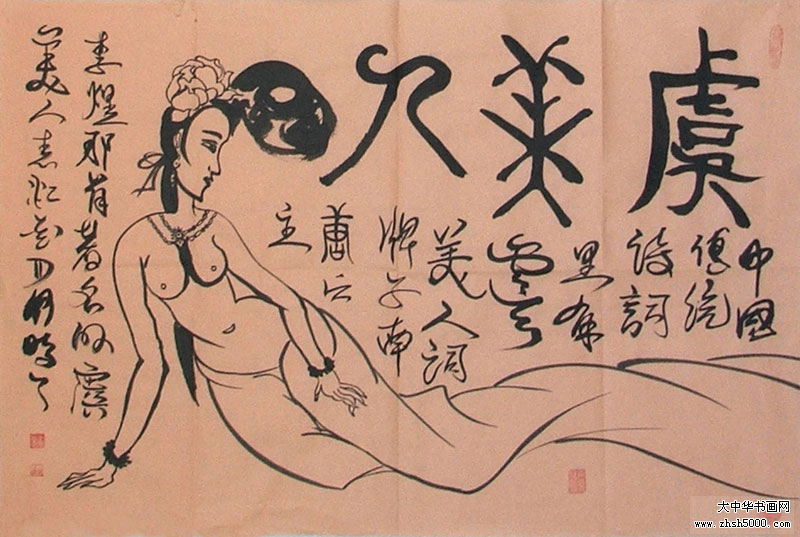 虞美人
中國
傳統
詩詞
里有
虞
美人詞
牌子南
唐后
主
李煜那首著名的虞
美人春花秋月何時了
大中华书画网
www.zhsh5000.com